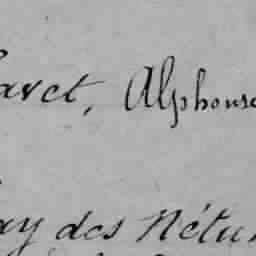 aret, Alphonse
ay des Nétu